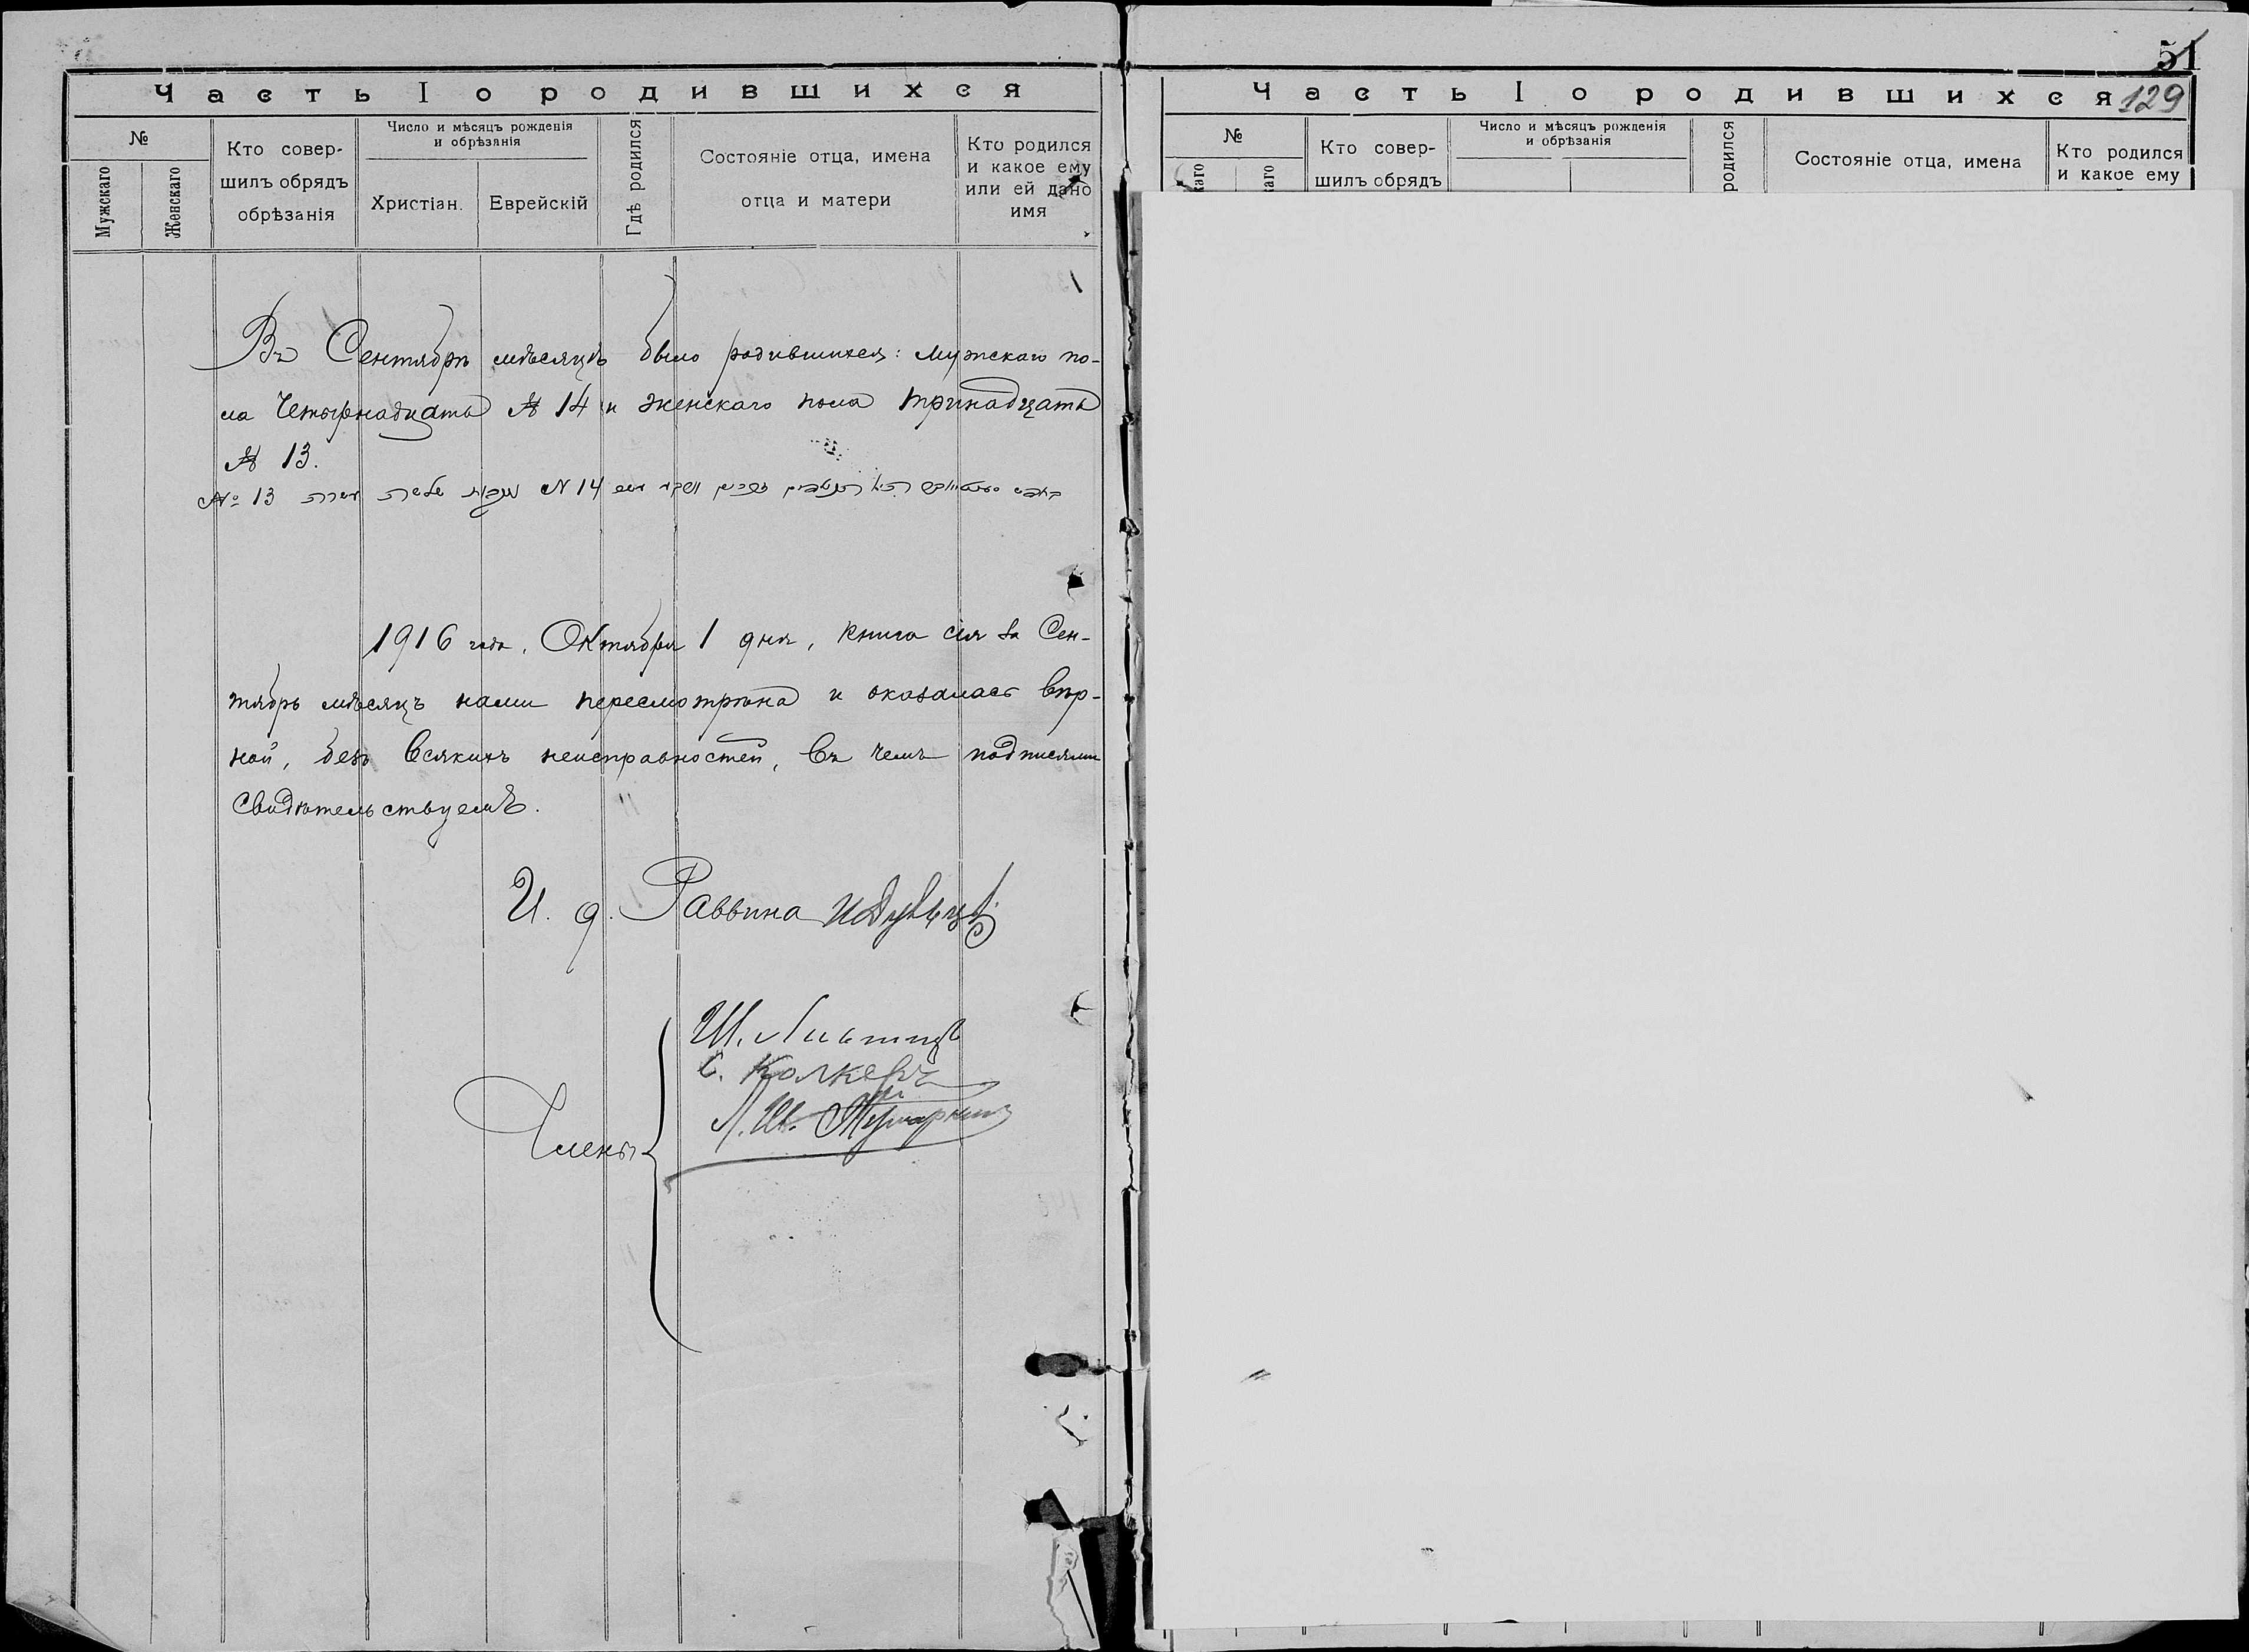 Часть I о родившихся
№
Мужскаго
Женскаго
Кто совер-
шилъ обрядъ
обрѣзанія
Число и мѣсяцъ рожденія
и обрѣзанія
Христіан.
Еврейскій
Гдѣ родился
Состояніе отца, имена
отца и матери
Кто родился
и какое ему
или ей дано
имя
Въ Сентябрѣ мѣсяцѣ было родившихся: мужскаго по-
ла четырнадцать № 14 и женскаго пола тринадцать
№ 13.
N 14
№ 13
1916 года, Октября 1 дня, книга сія за Сен-
тябрь мѣсяцъ нами пересмотрѣна и оказалась вѣр-
ной, безъ всякихъ неисправностей, въ чемъ подписями
свидѣтельствуемъ.
И. д. Раввина
Члены
Ш.
С.
Л. Ш.
51
129
Часть I о родившихся
№
каго
каго
Кто совер-
шилъ обрядъ
Число и мѣсяцъ рожденія
и обрѣзанія
родился
Состояніе отца, имена
Кто родился
и какое ему